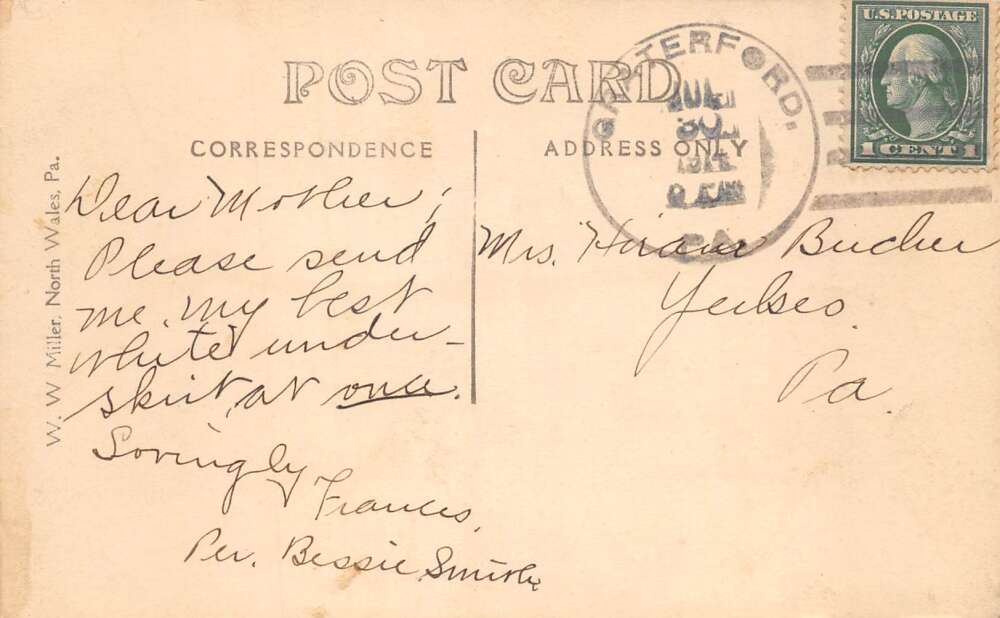 POST CARD
CORRESPONDENCE
ADDRESS ONLY
GRATERFORD,
JUL
30
PA.
U.S. POSTAGE
1 CENT 1
W. W Miller, North Wales, Pa.
Dear Mother;
Please send
me, my best
white under-
skirt, at once.
Lovingly
Frances,
Per. Bessie Smith
Mrs. Hiram Bucher
Yerkes.
Pa.